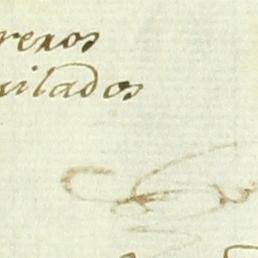 renos
uilados